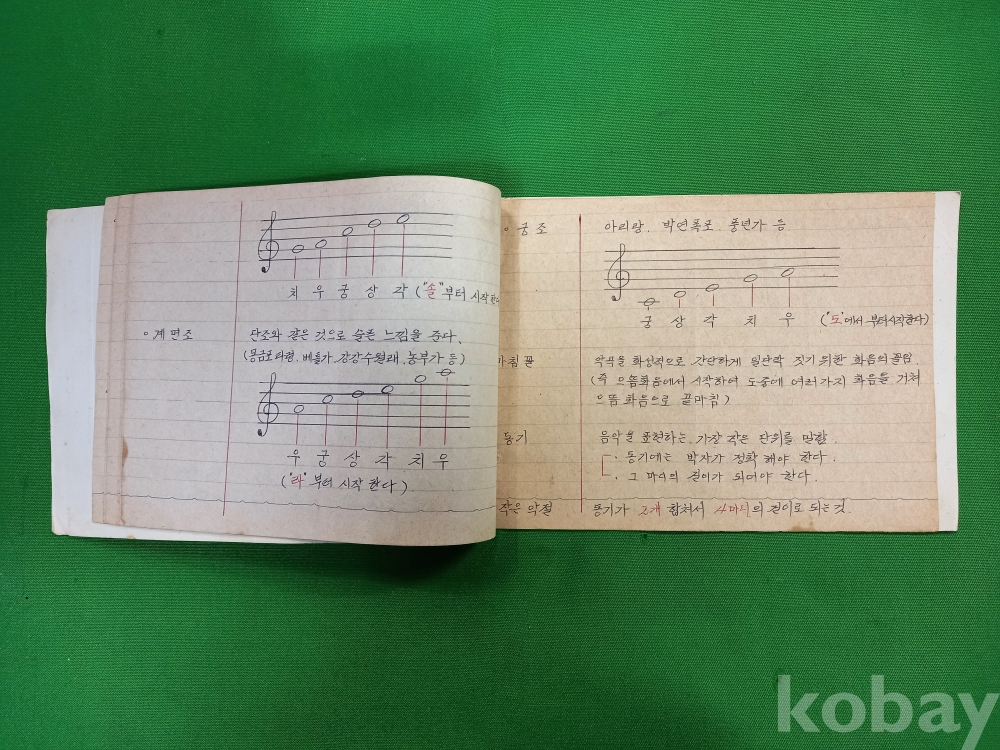 치 우 궁 상 각 ("솔"부터 시작한다
◦계면조 단조와 같은 것으로 슬픈 느낌을 준다.
(몽금포타령, 베틀가, 강강수월래, 농부가 등)
우 궁 상 각 치 우
("라"부터 시작 한다)
◦궁조 아리랑, 박연폭포, 풍년가 등
궁 상 각 치 우 ("도"에서 부터 시작한다)
마침꼴 악곡을 화성적으로 간단하게 일단락 짓기 위한 화음의 꼴임.
(즉 으뜸화음에서 시작하여 도중에 여러가지 화음을 거쳐
으뜸 화음으로 끝마침)
동기 음악을 표현하는, 가장 작은 단위를 말함.
· 동기에는 박자가 정확 해야 한다.
· 그 마디의 길이가 되어야 한다.
작은 악절 동기가 2개 합쳐서 4마디의 길이로 되는 것.
kobay